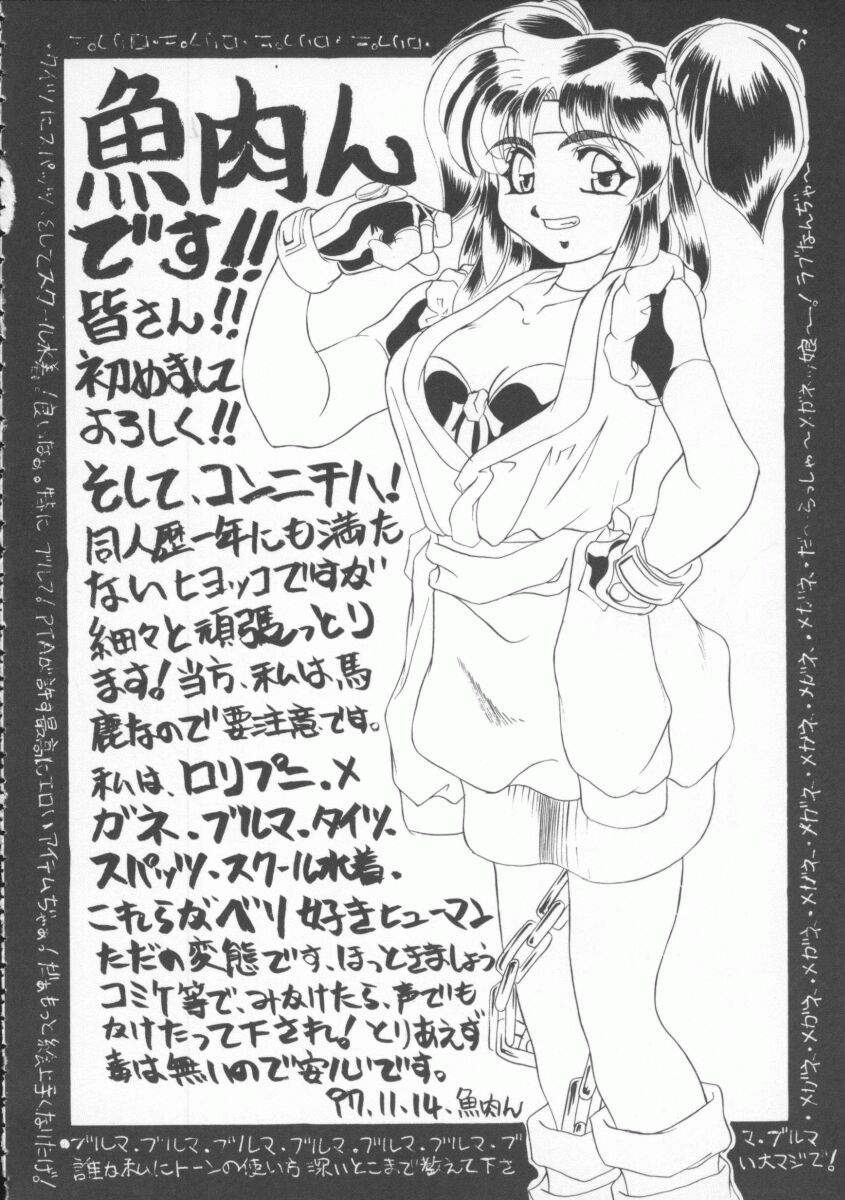 魚肉ん
です!!
皆さん!!
初めまして
よろしく!!
そして、コンニチハ!
同人歴一年にも満た
ないヒヨッコですが
細々と頑張っとり
ます!当方、私は、馬
鹿なので要注意です。
私は、ロリプニ、メ
ガネ、ブルマ、タイツ、
スパッツ、スクール水着、
これらがベリ好きヒューマン
ただの変態です、ほっときましょう
コミケ等で、みかけたら、声でも
かけたって下され!とりあえず
毒は無いので安心です。
97.11.14.魚肉ん
・タイツにスパッツ そしてスクール水着!良いねぇ。特に ブルマ!PTAが許す最高にエロい アイテムぢゃぁ!だぁもっと絵上手くなりたげ!
・ブルマ・ブルマ・ブルマ・ブルマ・ブルマ・ブルマ・ブ マ・ブルマ
誰か私にトーンの使い方 深いとこまで教えて下さ い大マジで!
・メガネ・メガネ・メガネ・メガネ・メガネ・メガネ・メガネ・だ〜らっしゃ〜メガネッ娘〜!ラブなんぢゃ〜っ!